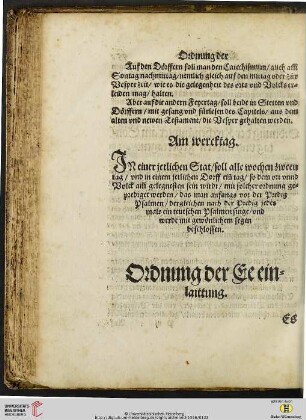 Ordnung der
Auff den Dörffern soll man den Catechismum / auch alle
Sontag nachmittag / nemlich gleich auf den mitag oder zur
Vesper zeit / wie es die gelegenheit des orts vnd Volcks er-
leiden mag / halten.
Aber auf die andern Feyertag / soll beide in Stetten vnd
Dörffern / mit gesang vnd fürlesen des Capitels / aus dem
alten vnd newen Testament / die Vesper gehalten werden.
Am wercktag.
IN einer jetlichen Stat / soll alle wochen zween
tag / vnd in einem jetlichen Dorff ein tag / so dem ort vnnd
Volck am gelegnesten sein würdt / mit solcher ordnung ge-
prediget werden / das man anfangs vor der Predig
Psalmen / dergleichen nach der Predig jedes
mals ein teutschen Psalmen singe / vnd
werde mit gewönlichem segen
beschlossen.
Ordnung der Ee ein-
laittung.
Es